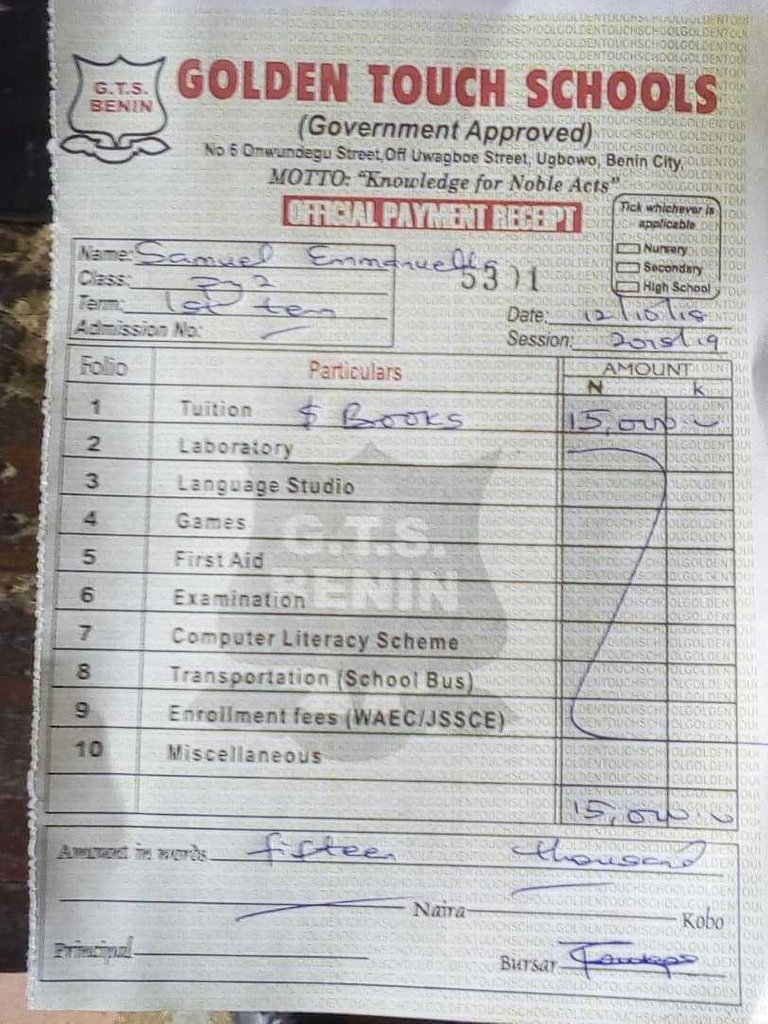 G.T.S.
BENIN
GOLDEN TOUCH SCHOOLS
(Government Approved)
No 6 Onwundegu Street, Off Uwagboe Street, Ugbowo, Benin City,
MOTTO: "Knowledge for Noble Acts"
OFFICIAL PAYMENT RECEIPT
Tick whichever is
applicable
Nursery
Secondary
High School
Name: Samuel Emmanuella
5301
Class: 2
Term: 1st
Admission No:
Date: 12/10/18
Session: 2018/19
Folio Particulars AMOUNT
N k
1 Tuition & Books 15,000
2 Laboratory
3 Language Studio
4 Games
5 First Aid
6 Examination
7 Computer Literacy Scheme
8 Transportation (School Bus)
9 Enrollment fees (WAEC/JSSCE)
10 Miscellaneous
15,000
G.T.S.
BENIN
Amount in words fifteen thousand
Naira Kobo
Principal
Bursar